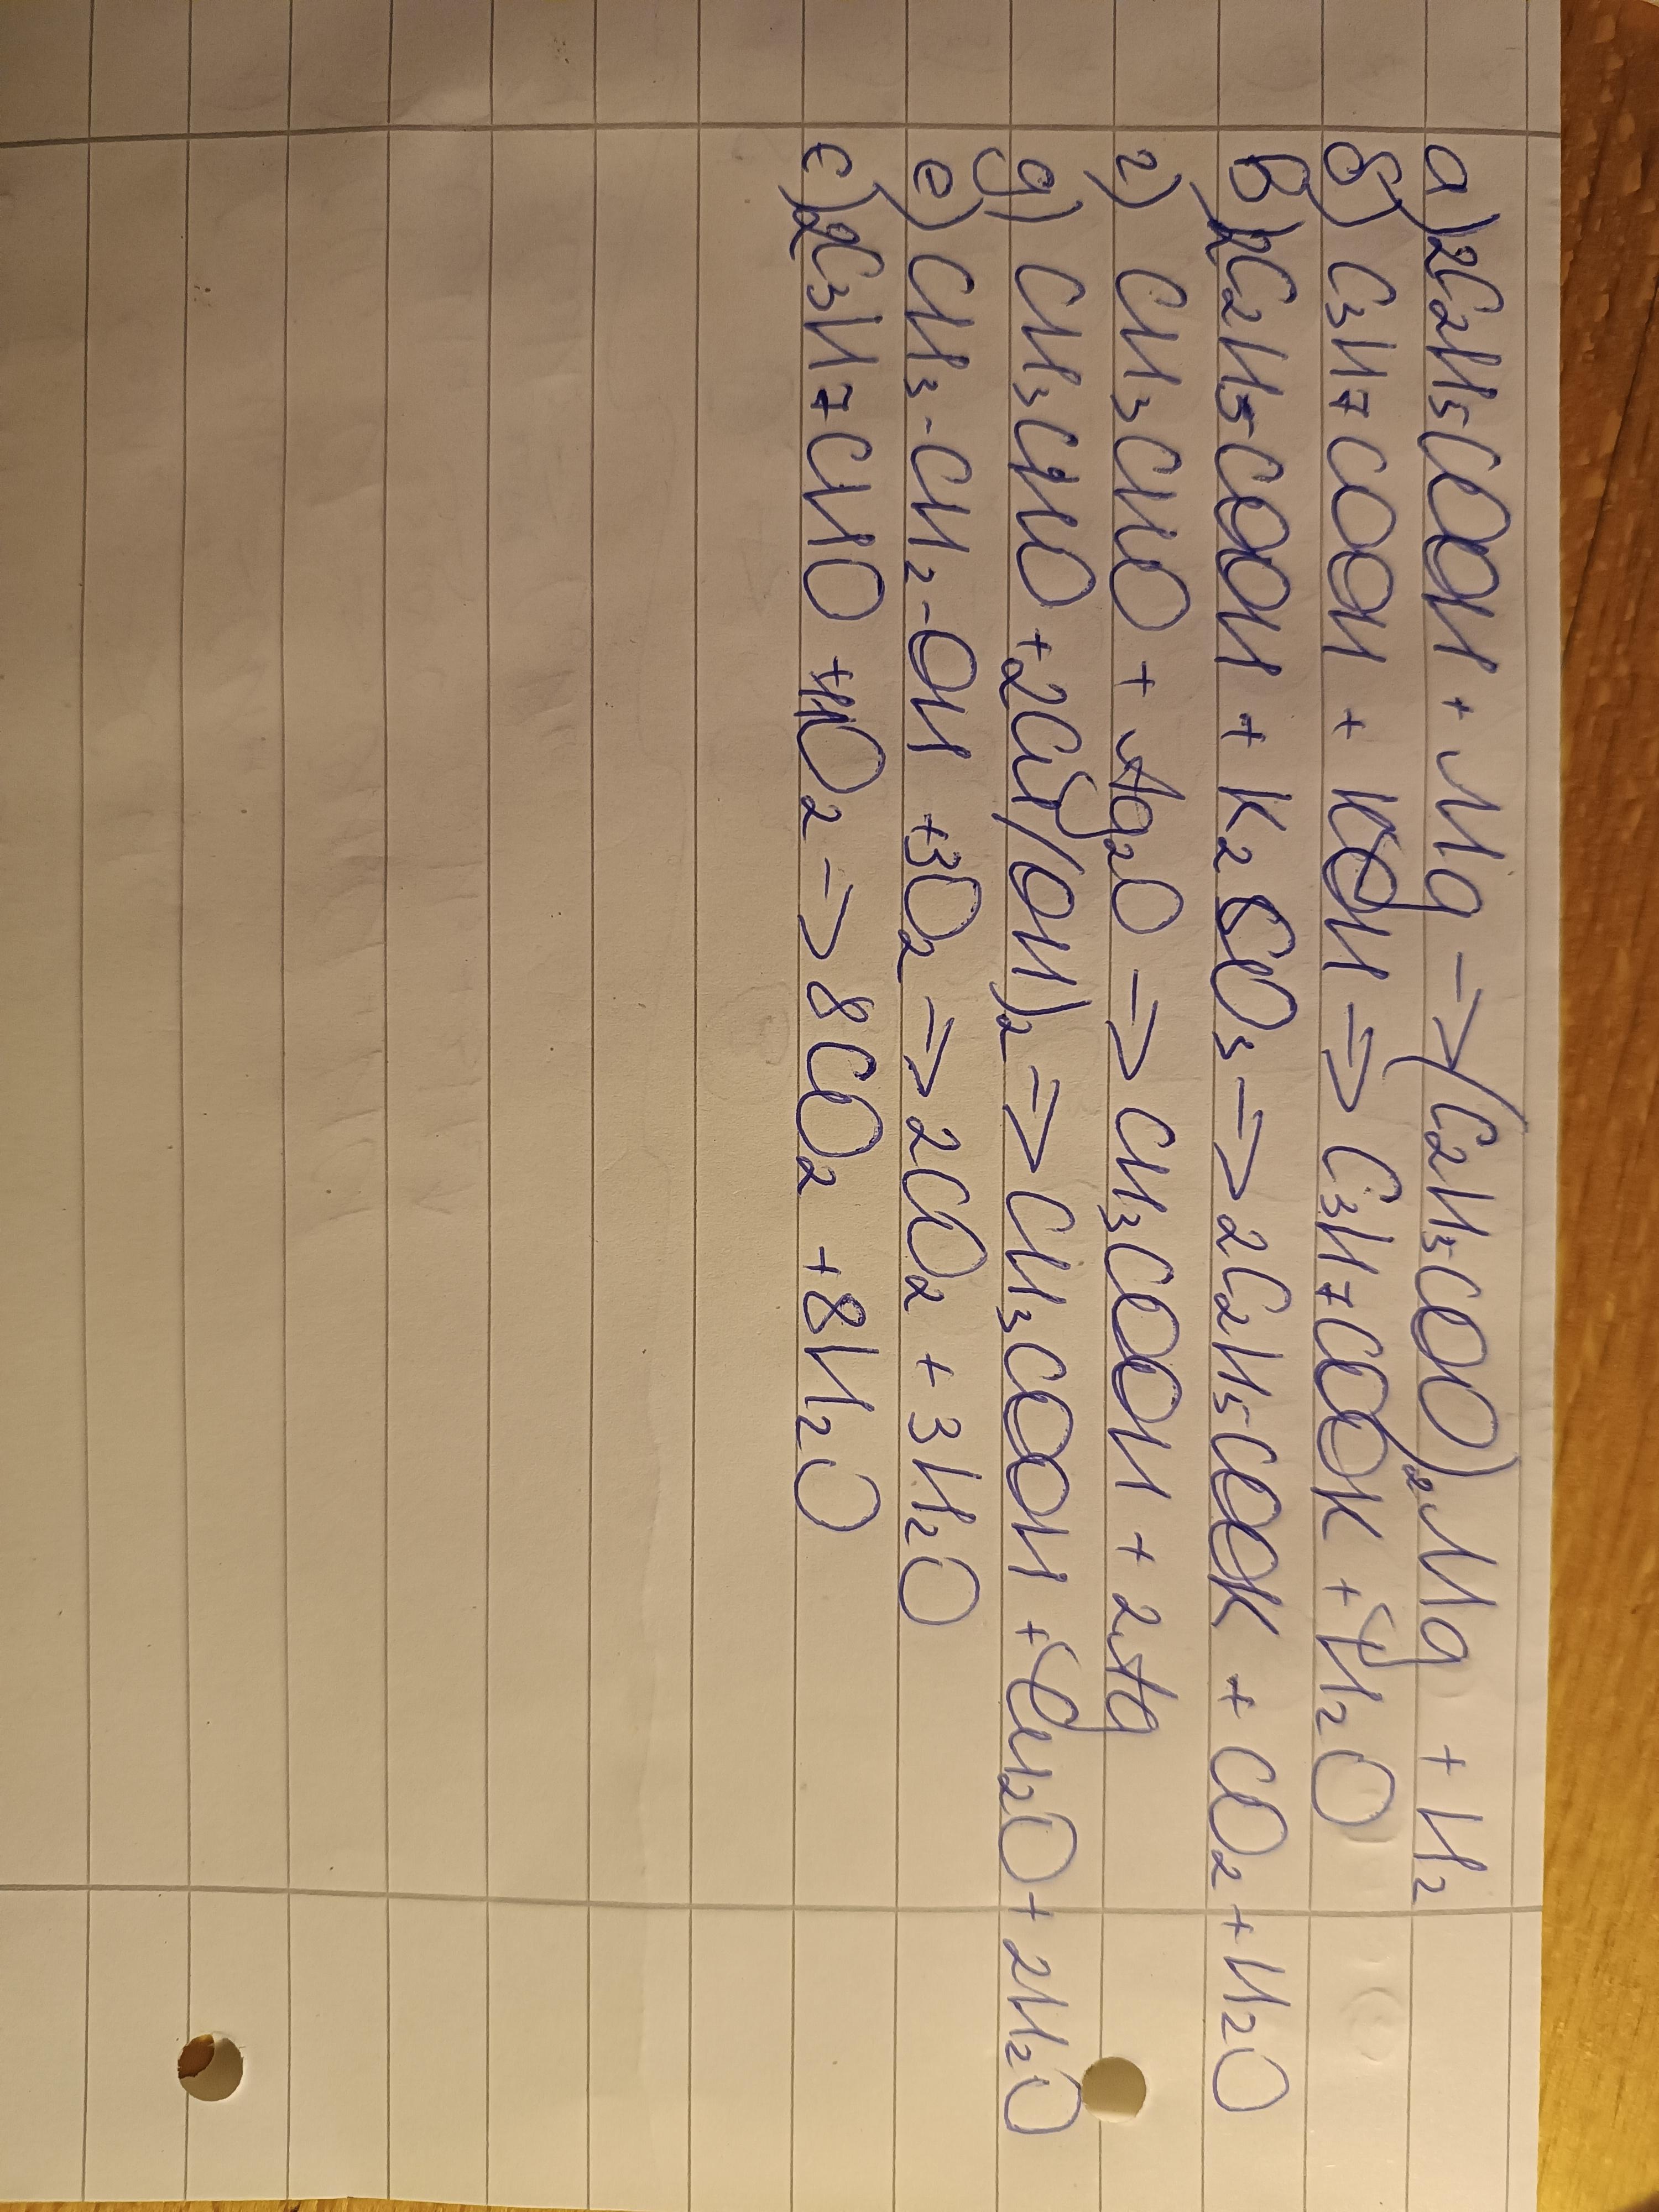 а) 2C₂H₅COOH + Mg => (C₂H₅COO)₂Mg + H₂
б) C₃H₇COOH + KOH => C₃H₇COOK + H₂O
в) 2C₂H₅COOH + K₂CO₃ => 2C₂H₅COOK + CO₂ + H₂O
г) CH₃CHO + Ag₂O => CH₃COOH + 2Ag
д) CH₃CHO + 2Cu(OH)₂ => CH₃COOH + Cu₂O + 2H₂O
е) CH₃-CH₂-OH + 3O₂ => 2CO₂ + 3H₂O
є) 2C₃H₇CHO + 11O₂ => 8CO₂ + 8H₂O